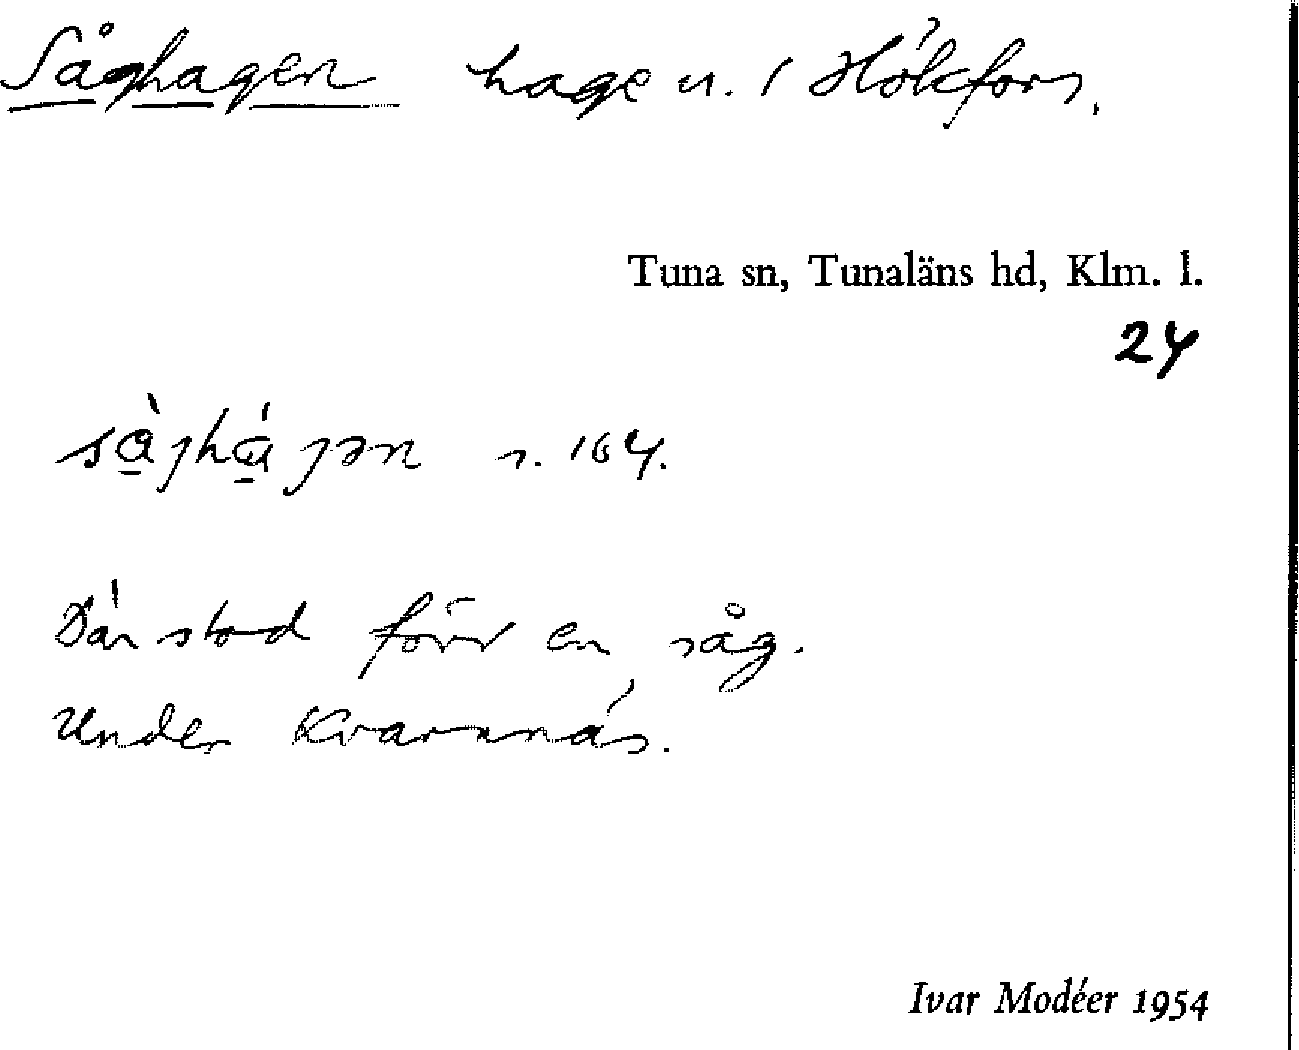 Såghagen hage u. / Hökfors.
Tuna sn, Tunaläns hd, Klm. l.
24
s. 164.
Där stod förr en såg.
Under Kvarnnäs.
Ivar Modéer 1954